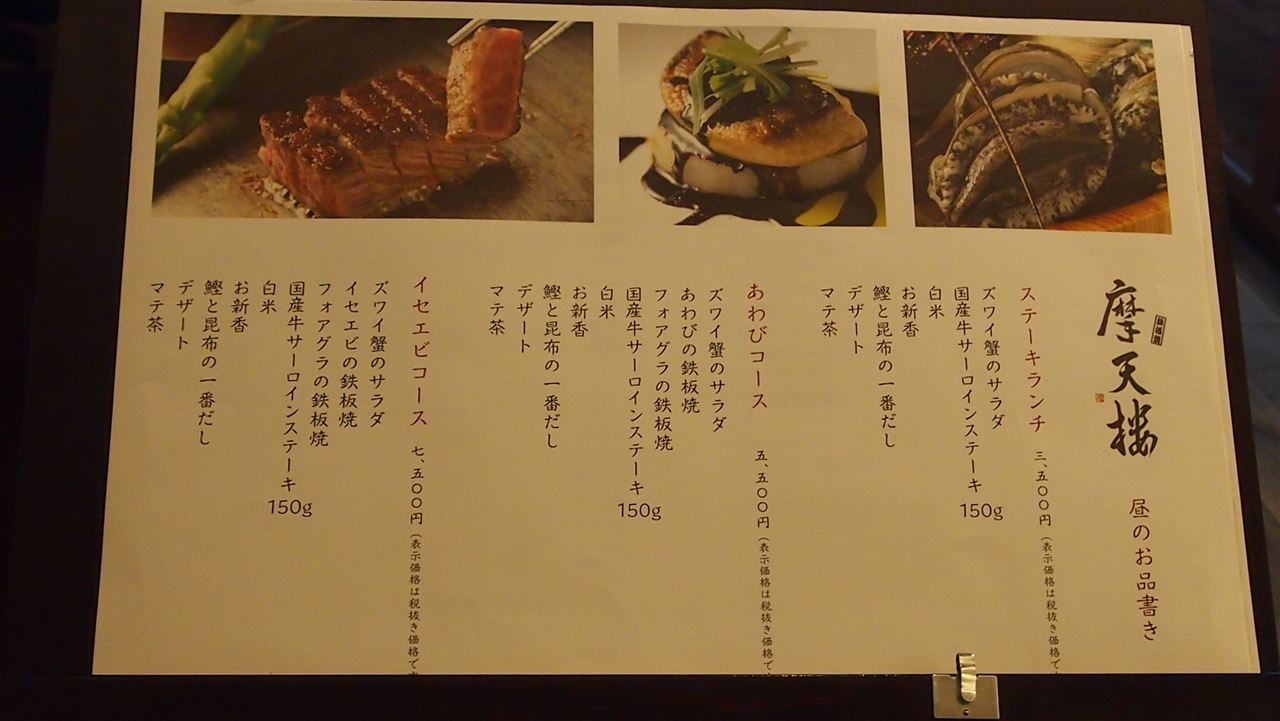 摩天楼
昼のお品書き
ステーキランチ 三、五〇〇円(表示価格は税抜き価格で
ズワイ蟹のサラダ
国産牛サーロインステーキ 150g
白米
お新香
鰹と昆布の一番だし
デザート
マテ茶
あわびコース 五、五〇〇円(表示価格は税抜き価格で
ズワイ蟹のサラダ
あわびの鉄板焼
フォアグラの鉄板焼
国産牛サーロインステーキ 150g
白米
お新香
鰹と昆布の一番だし
デザート
マテ茶
イセエビコース 七、五〇〇円(表示価格は税抜き価格で
ズワイ蟹のサラダ
イセエビの鉄板焼
フォアグラの鉄板焼
国産牛サーロインステーキ 150g
白米
お新香
鰹と昆布の一番だし
デザート
マテ茶